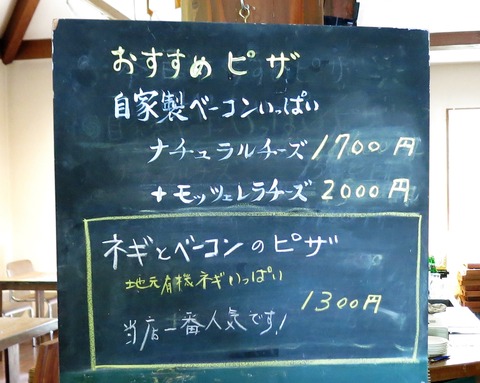 おすすめピザ
自家製ベーコンいっぱい
ナチュラルチーズ 1700円
+モッツェレラチーズ 2000円
ネギとベーコンのピザ
地元有機ネギいっぱい
1300円
当店一番人気です!